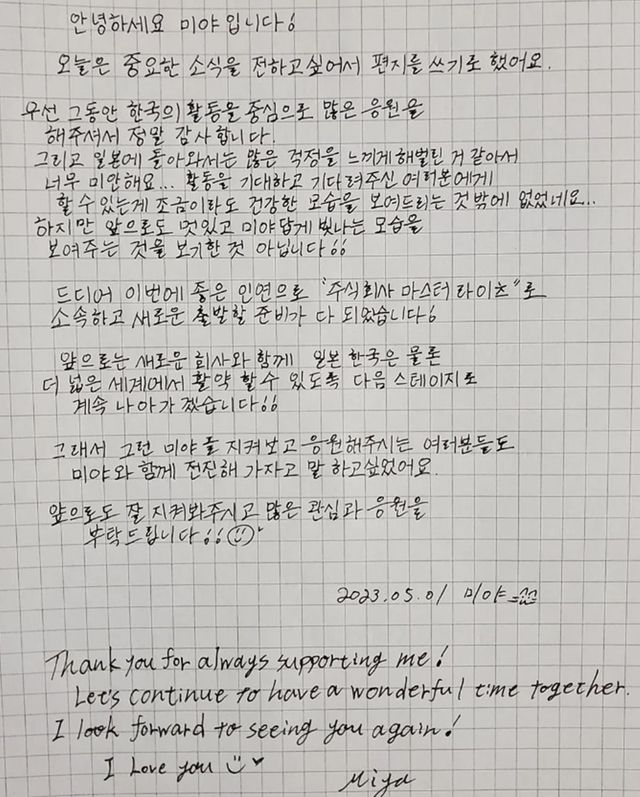 안녕하세요 미야입니다!
오늘은 중요한 소식을 전하고싶어서 편지를 쓰기로 했어요.
우선 그동안 한국의 활동을 중심으로 많은 응원을
해주셔서 정말 감사합니다.
그리고 일본에 돌아와서는 많은 걱정을 느끼게해버린 거 같아서
너무 미안해요... 활동을 기대하고 기다려주신 여러분에게
할 수 있는게 조금이라도 건강한 모습을 보여드리는 것 밖에 없었네요...
하지만 앞으로도 멋있고 미야답게 빛나는 모습을
보여주는 것을 보기한 것 아닙니다!!
드디어 이번에 좋은 인연으로 "주식회사 마스터 라이츠"로
소속하고 새로운 출발할 준비가 다 되었습니다!
앞으로는 새로운 회사와 함께 일본 한국은 물론
더 넓은 세계에서 활약 할 수 있도록 다음 스테이지로
계속 나아가겠습니다!!
그래서 그런 미야를 지켜보고 응원해주시는 여러분들도
미야와 함께 전진해 가자고 말 하고싶었어요.
앞으로도 잘 지켜봐주시고 많은 관심과 응원을
부탁드립니다!!
2023.05.01 미야
Thank you for always supporting me!
Let's continue to have a wonderful time together.
I look forward to seeing you again!
I Love you
Miya